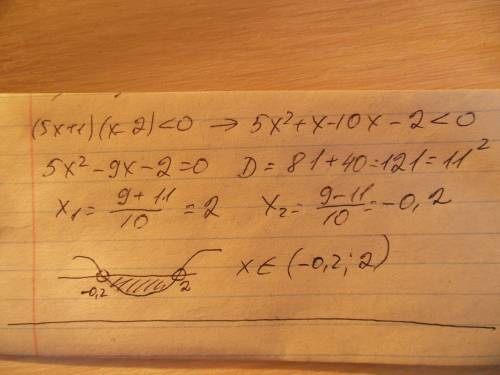 (5x+1)(x-2)<0 → 5x²+x-10x-2<0
5x²-9x-2=0 D=81+40=121=11²
x₁=\frac{9+11}{10}=2 x₂=\frac{9-11}{10}=-0,2
-0,2 2 x∈(-0,2; 2)